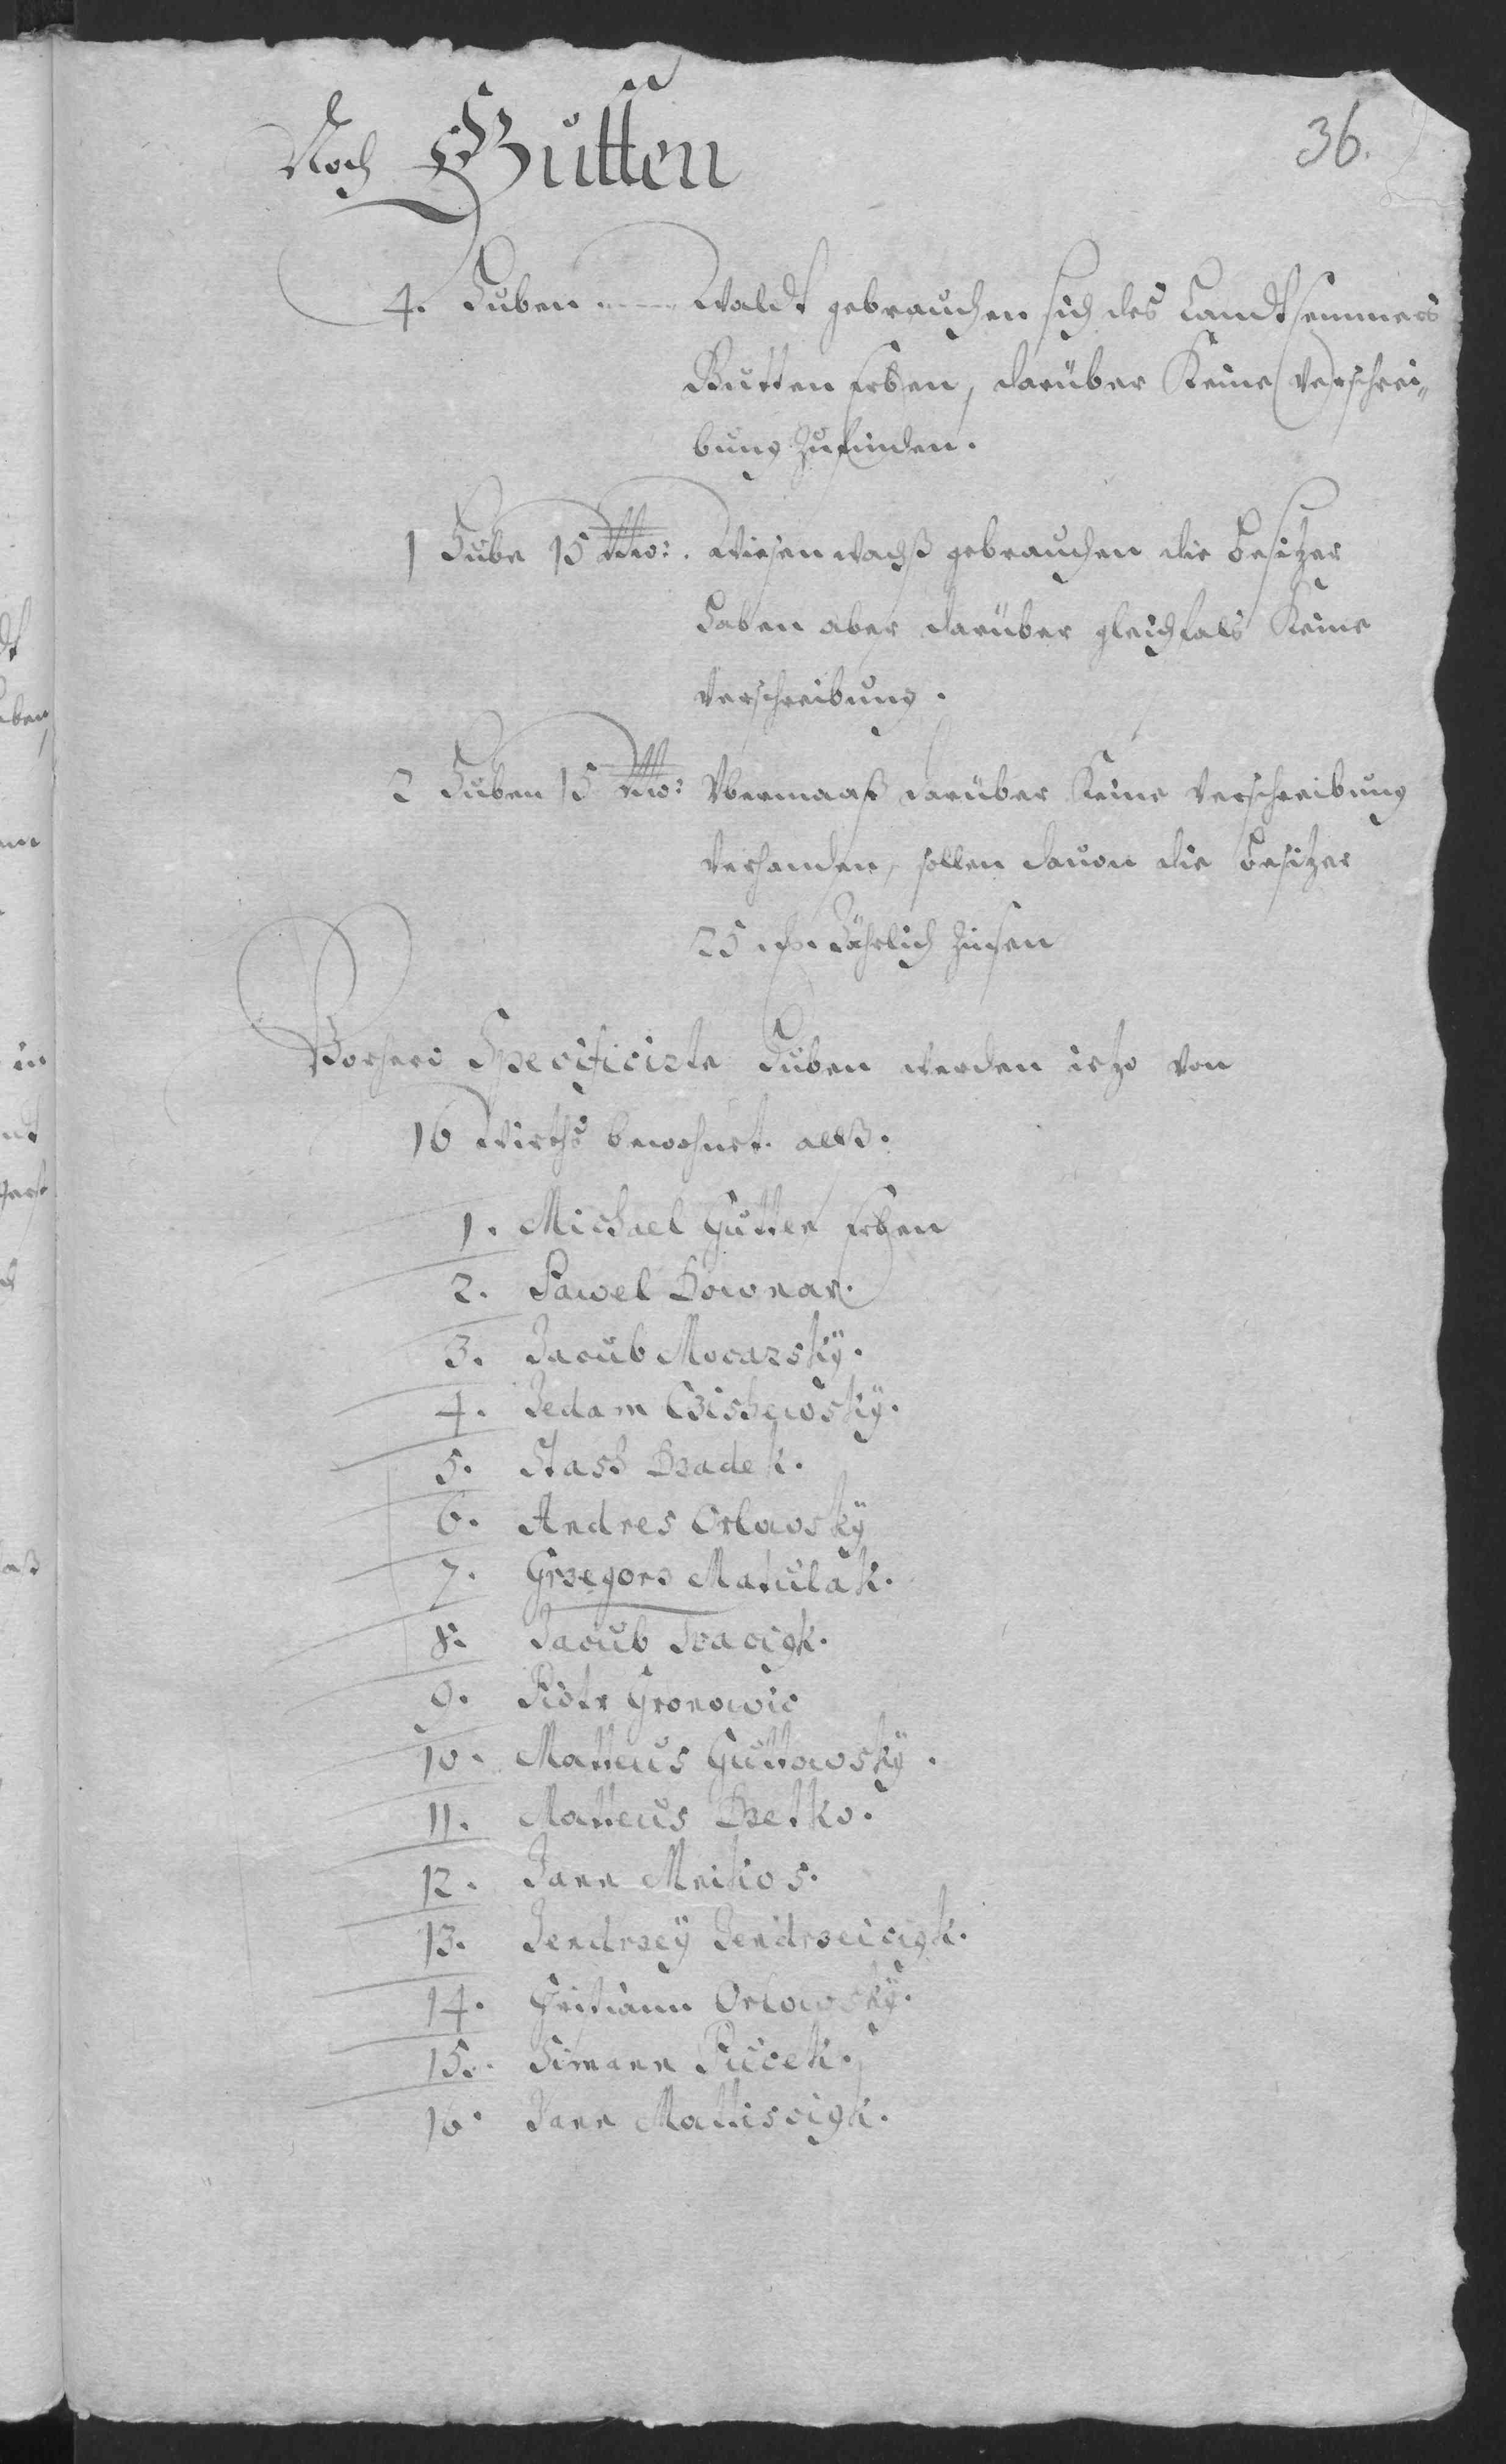 36.
Noch Gutten
4. Huben Waldt gebrauchen sich des Landtkemmers
Gutten Erben, darüber Keine Verschrei„
bung zufinden.
1 Hube 15 Mo: Wiesenwachß gebrauchen die Besitzer
Haben aber darüber gleichfals Keine
Verschreibung.
2 Huben 15 Mo: Vbermaaß darüber Keine Verschreibung
Verhanden, sollen davon die Besitzer
25 Jährlich Zinsen
Vorhero Specificirte Huben werden ietzo von
16 Wirths bewohnet. alß.
1. Michael Gutten Erben
2. Pawel Downar.
3. Jacub Mocarskÿ.
4. Jedam Czishewskÿ.
5. Stash Dzadek.
6. Andres Orlowskÿ
7. Grzegorz Matulak.
8. Jacub
9. Piotr Gronowic
10. Matteus Guttowskÿ.
11. Matteus Dzetko.
12. Jann Meikos.
13. Jendrzeÿ Jendrzeicigk.
14. Orlowskÿ.
15. Simann Piicek.
16. Jann Mattiscigk.